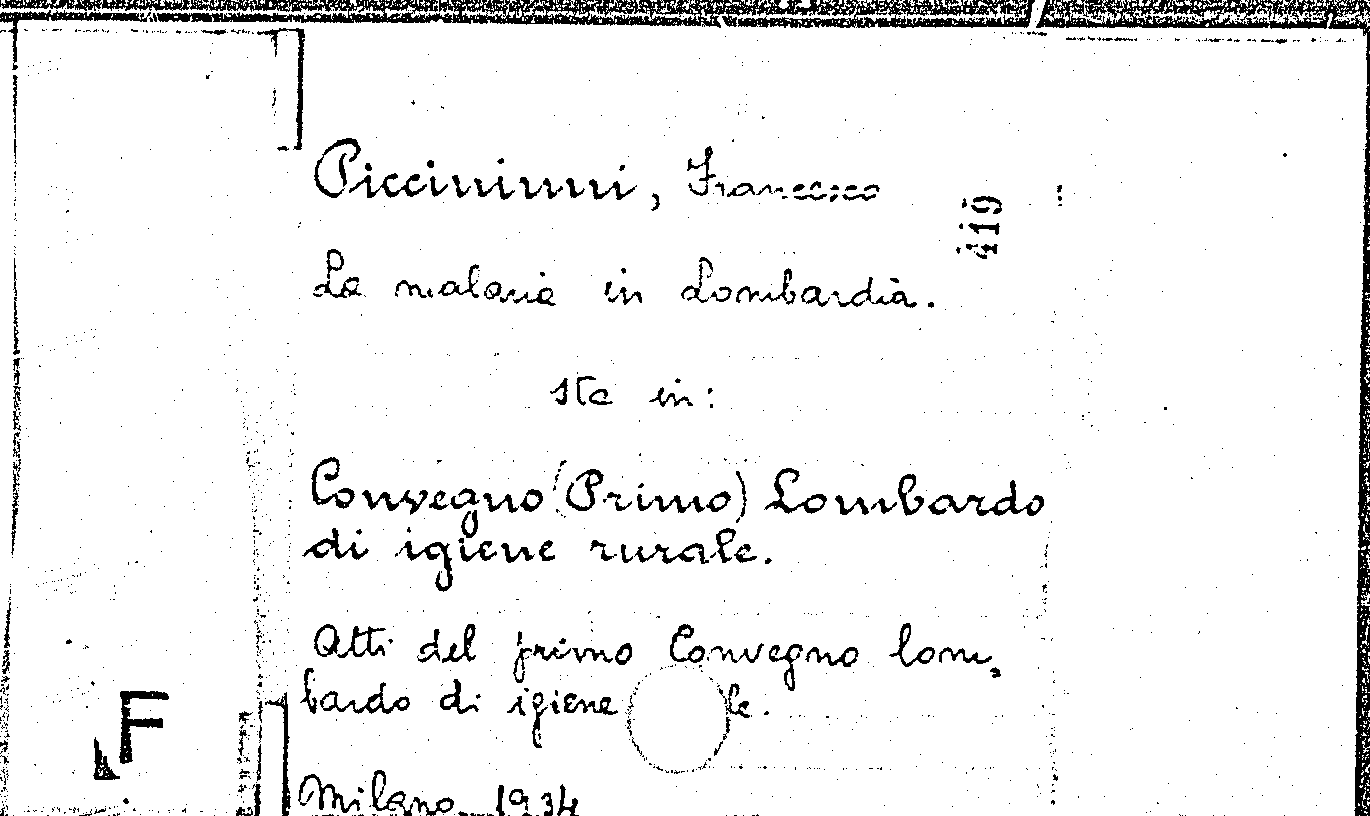 Piccininni, Francesco
419
La malaria in Lombardia.
sta in:
Convegno (Primo) Lombardo
di igiene rurale.
Atti del primo Convegno lom,
bardo di igiene le.
F
Milano 1934